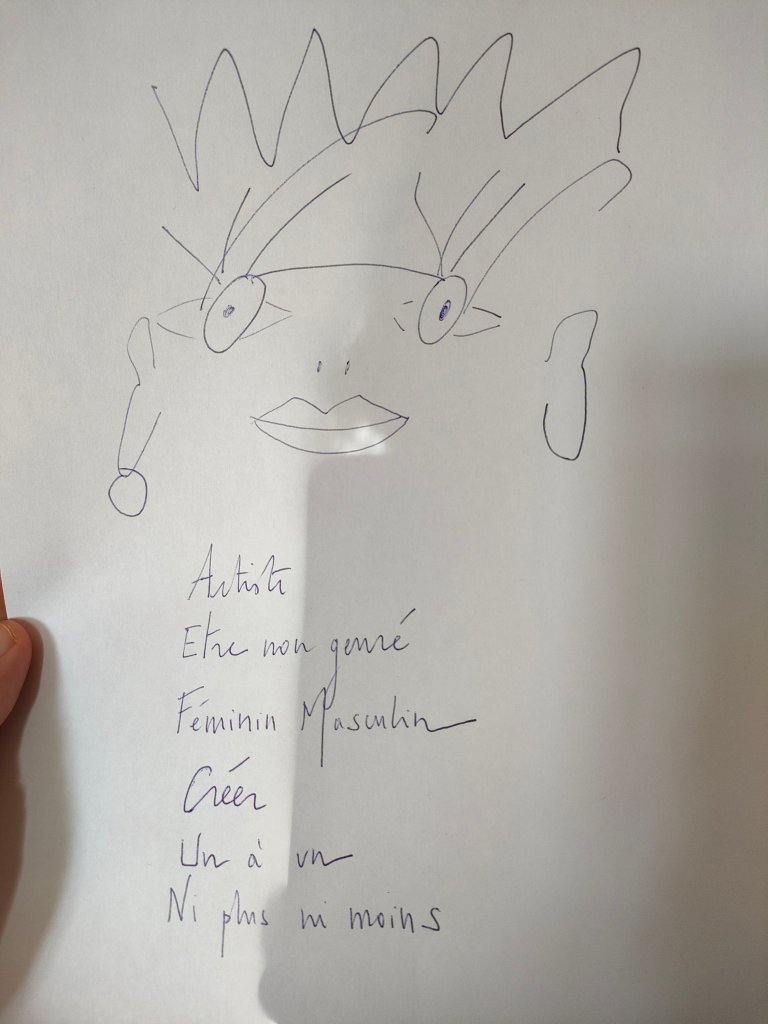 Artiste
Etre non genré
Féminin Masculin
Créer
Un à un
Ni plus ni moins